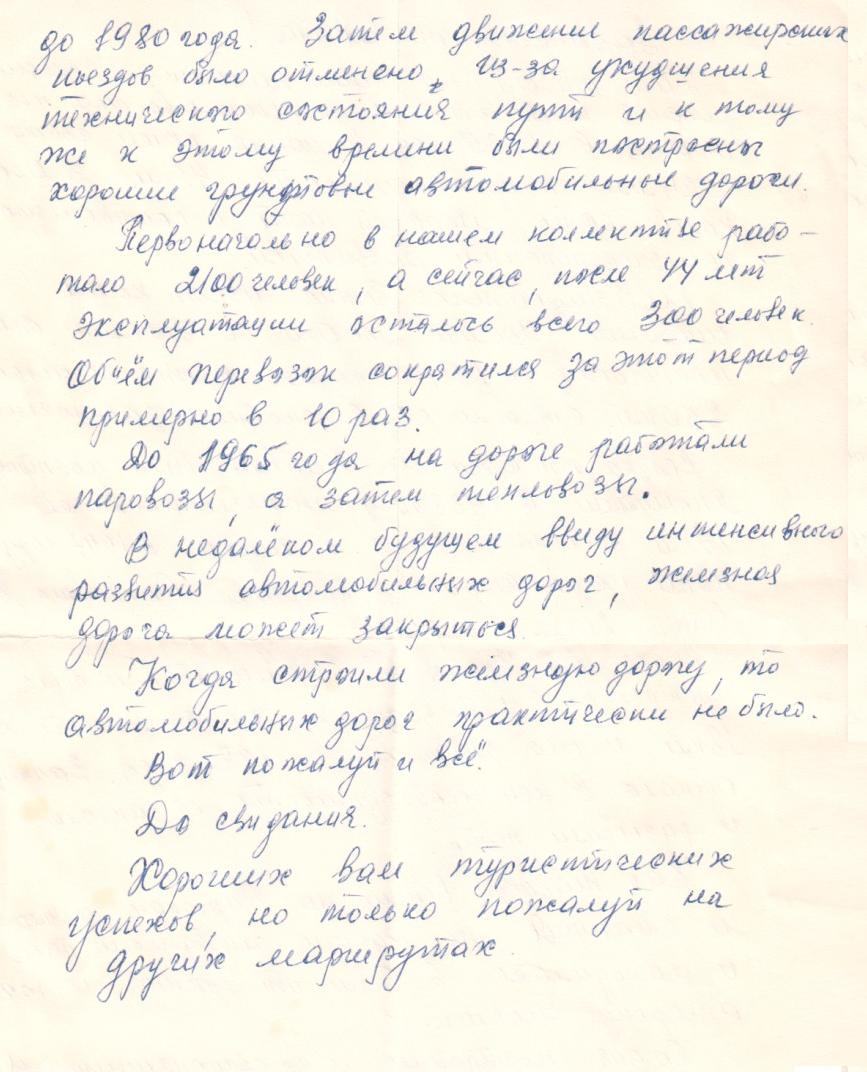 до 1980 года. Затем движение пассажирских
поездов было отменено, из-за ухудшения
технического состояния пути и к тому
же к этому времени были построены
хорошие грунтовые автомобильные дороги.
Первоначально в нашем коллективе рабо-
тало 2100 человек, а сейчас, после 44 лет
эксплуатации осталось всего 300 человек.
Объём перевозок сократился за этот период
примерно в 10 раз.
До 1965 года на дороге работали
паровозы, а затем тепловозы.
В недалёком будущем ввиду интенсивного
развития автомобильных дорог, железная
дорога может закрыться.
Когда строили железную дорогу, то
автомобильных дорог практически не было.
Вот пожалуй и всё.
До свидания.
Хороших вам туристических
успехов, но только пожалуй на
других маршрутах.